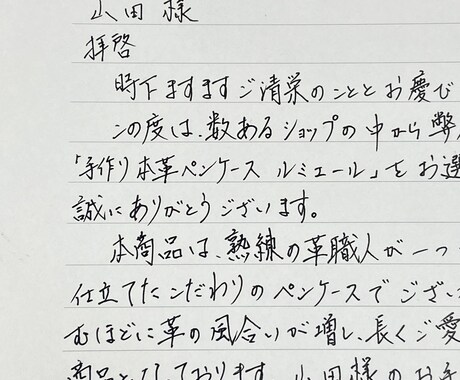 山田様
拝啓
時下ますますご清栄のこととお慶び
この度は、数あるショップの中から弊
「手作り本革ペンケース ルミエール」をお選
誠にありがとうございます。
本商品は、熟練の革職人が一つ
仕立てたこだわりのペンケースでござい
むほどに革の風合いが増し、長くご愛
商品となっております。山田様のお手